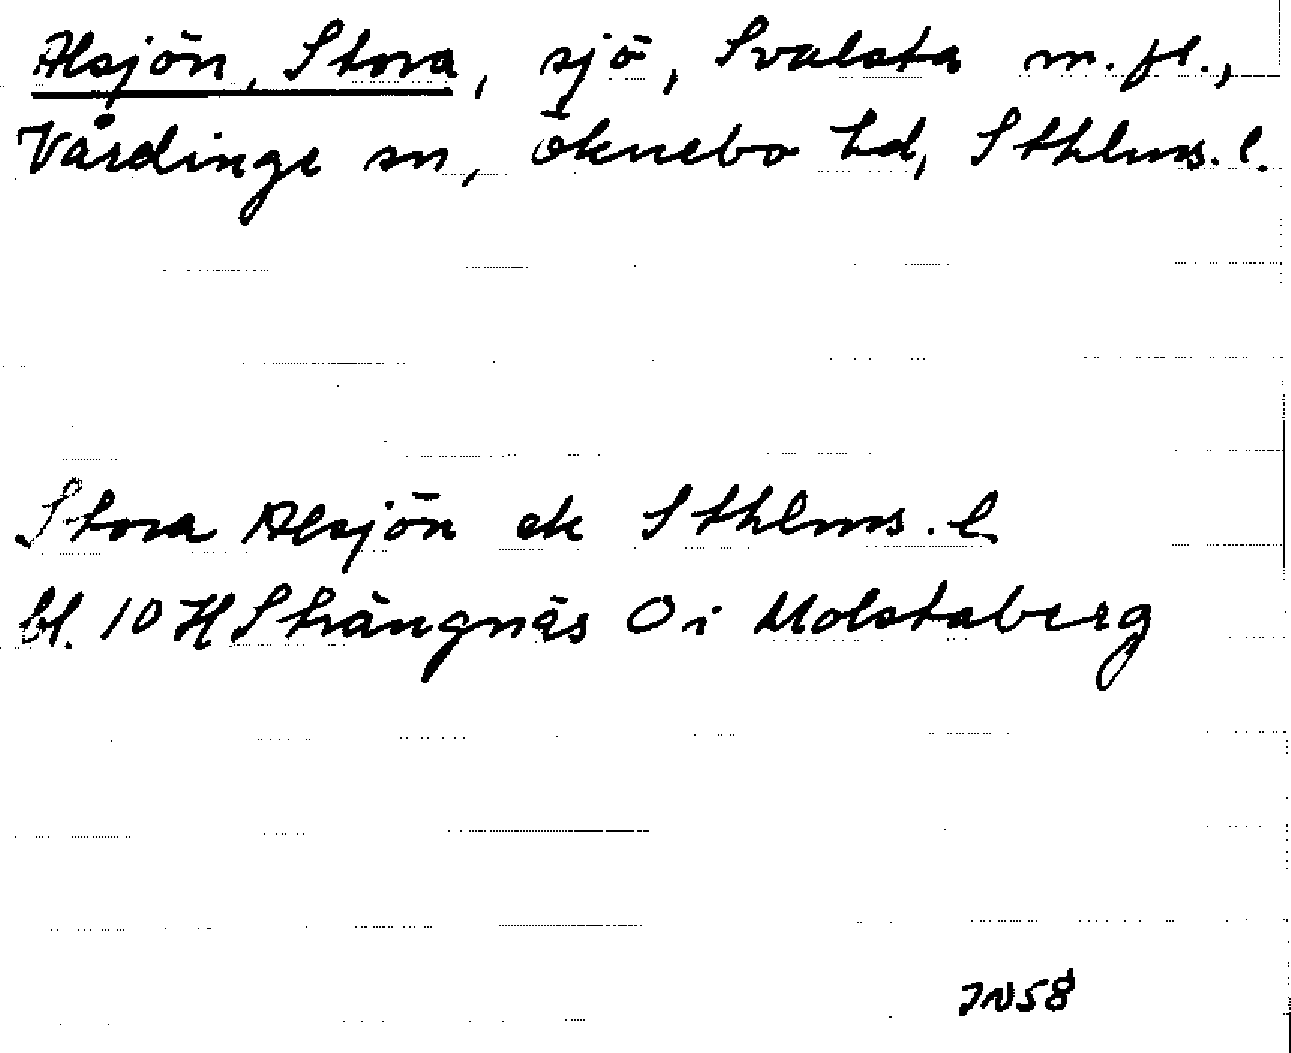 Alsjön, Stora, sjö, Svalsta m.fl.,
Vårdinge sn, Öknebo hd, Sthlms. l.
Stora Alsjön ek Sthlms. l
bl. 10 H Strängnäs O i Molstaberg
JN58